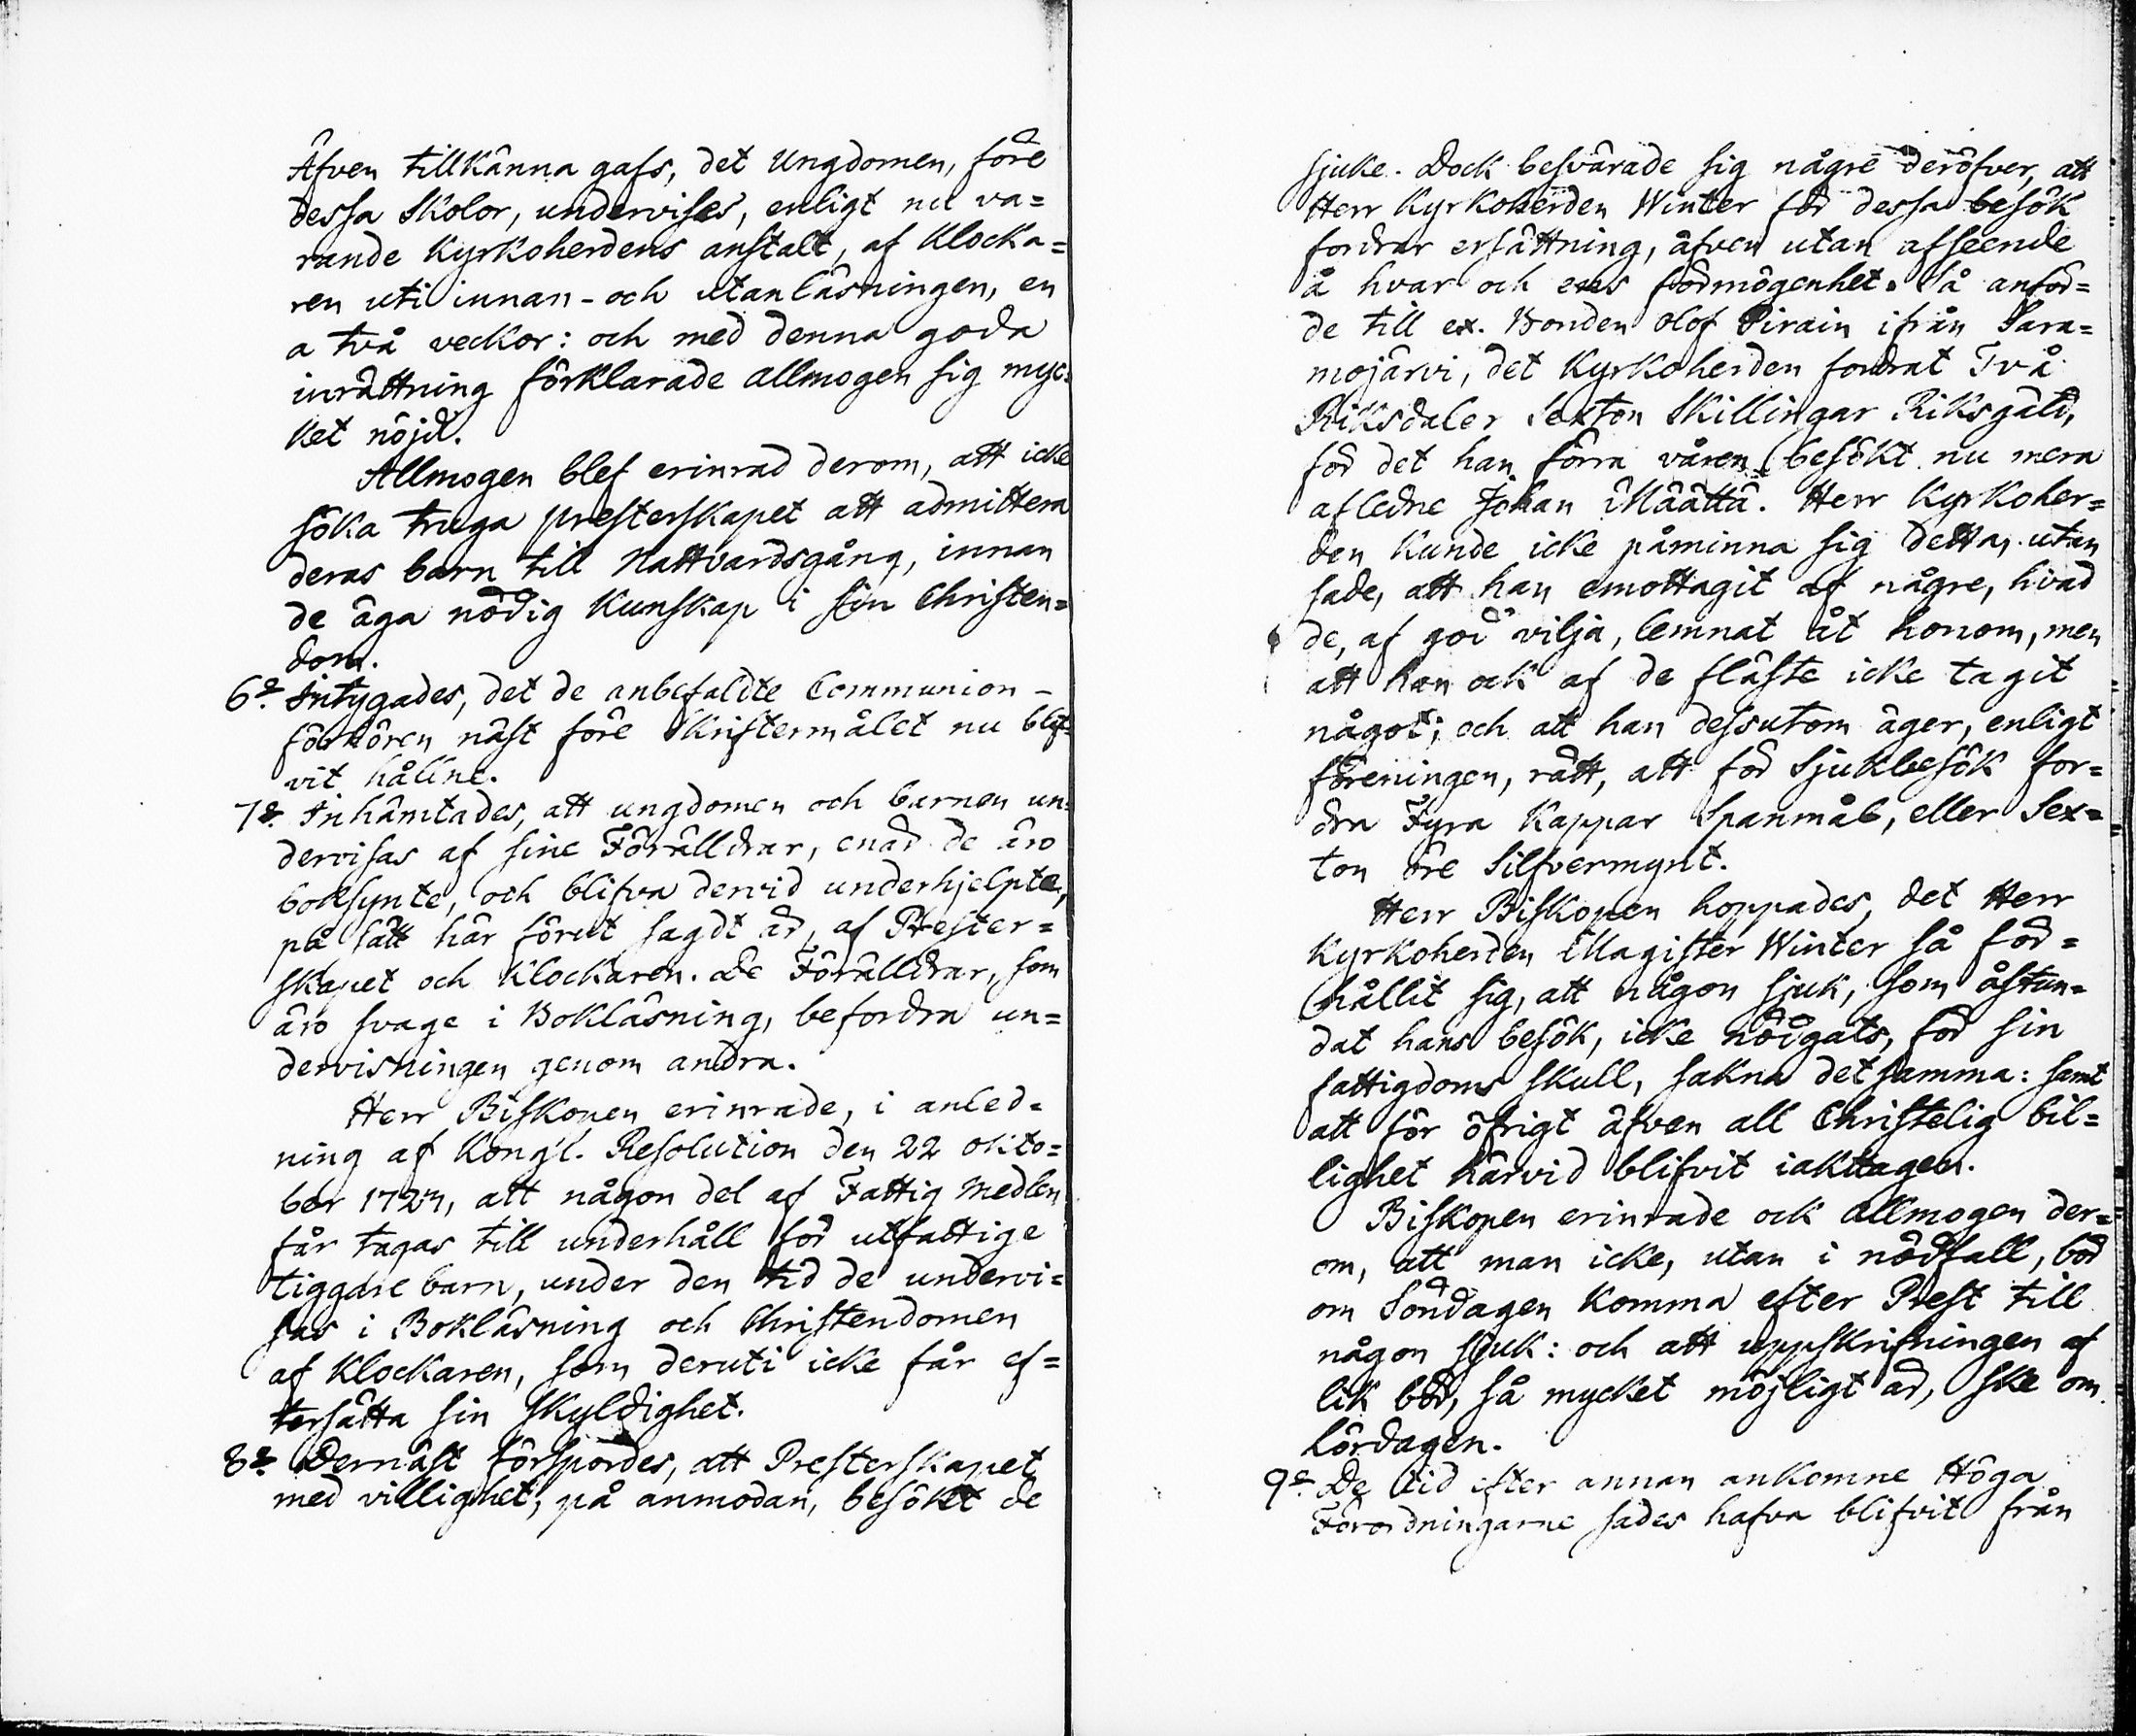 Äfven tillkänna gafs, det Ungdomen, före
dessa Skolor, undervises, enligt nu va=
rande Kyrkoherdens anstalt, af Klocka=
ren uti innan- och utanläsningen, en
a två veckor: och med denna goda
inrättning förklarade allmogen sig myc=
ket nöjd.
Allmogen blef erinrad derom, att icke
söka truga presterskapet att admittera
deras barn till Nattvardsgång, innan
de äga nödig Kunskap i sin Christen=
dom.
6º. Intygades, det de anbefaldte Communion-
förhören näst före Skriftermålet nu blif=
vit hållne.
7º. Inhämtades, att ungdomen och barnen un=
dervisas af sine Föräldrar, enär de äro
boksynte, och blifva dervid underhjelpte,
på sätt här förut sagdt är, af Prester=
skapet och Klockaren. De Föräldrar, som
äro svage i Bokläsning, befordra un=
dervisningen genom andra.
Herr Biskopen erinrade, i anled=
ning af Kongl. Resolution den 22 Okto=
ber 1724, att någon del af Fattig Medlen
får tagas till underhåll för utfattige
tiggare barn, under den tid de undervi=
sas i Bokläsning och Christendomen
af Klockaren, som deruti icke får ef=
tersätta sin skyldighet.
8º. Dernäst förspordes, att Presterskapet
med villighet, på anmodan, besökt de
sjuke. Dock besvärade sig någre deröfver, att
Herr Kyrkoherden Winter för dessa besök
fordrar ersättning, äfven utan afseende
å hvar och ens förmögenhet. Så anför=
de till ex. Bonden Olof Pirain ifrån Sara=
mojärvi, det Kyrkoherden fordrat Två
Riksdaler Sexton Skillingar Riksgäld,
för det han förra våren besökt nu mera
afledne Johan Määttä. Herr Kyrkoher=
den Kunde icke påminna sig detta, utan
sade, att han emottagit af någre, hvad
de, af god vilja, lemnat åt honom, men
att han ock af de fläste icke tagit
något; och att han dessutom äger, enligt
föreningen, rätt, att för Sjukbesök for=
dra Fyra Kappar Spanmål, eller Sex=
ton öre Silfvermynt.
Herr Biskopen hoppades, det Herr
Kyrkoherden Magister Winter så för=
hållit sig, att någon sjuk, som åstun=
dat hans besök, icke nödgats, för sin
fattigdoms skull, sakna det samma: samt
att för öfrigt äfven all Christelig bil=
lighet härvid blifvit iakttagen.
Biskopen erinrade ock allmogen der=
om, att man icke, utan i nödfall, bör
om Söndagen Komma efter Prest till
någon sjuk: och att uppskrifningen af
lik bör, så mycket möjligt är, ske om
Lördagen.
9º. De tid efter annan ankomne Höga
Förordningarne sades hafva blifvit från